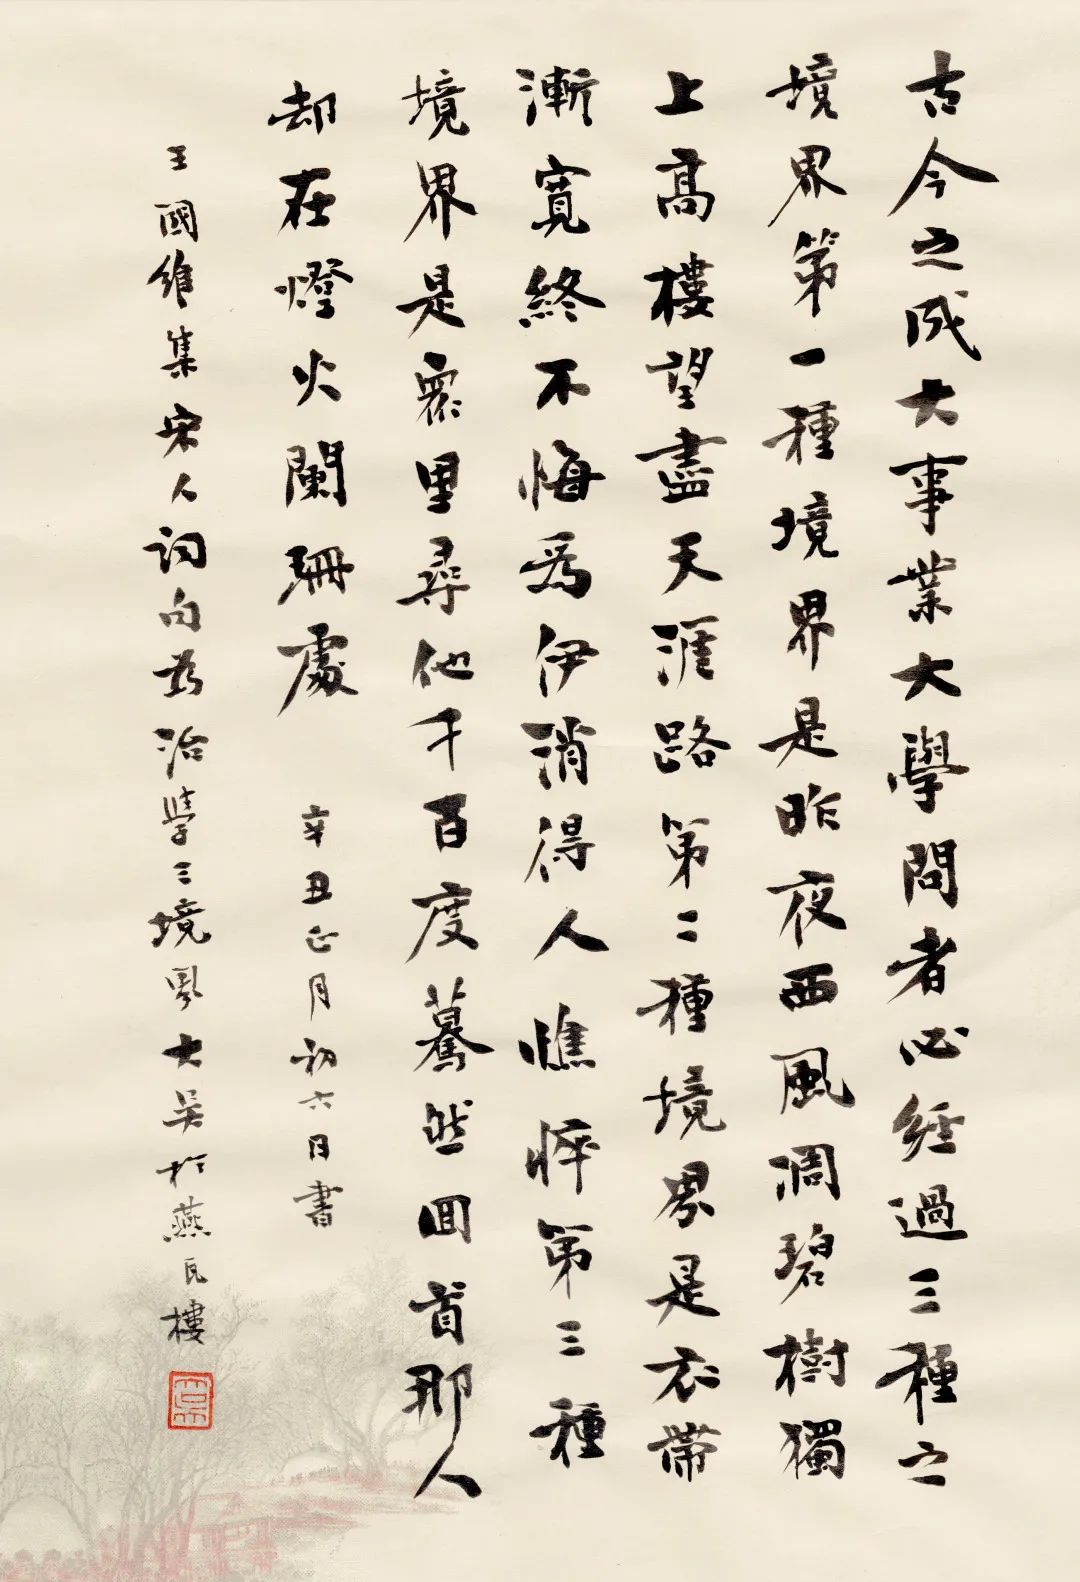 古今之成大事業大學問者必經過三種之
境界第一種境界是昨夜西風凋碧樹獨
上高樓望盡天涯路第二種境界是衣帶
漸寬終不悔為伊消得人憔悴第三種
境界是眾里尋他千百度驀然回首那人
却在燈火闌珊處
辛丑正月初六日書
王國維集宋人詞句為治學三境界大吴於燕瓦樓